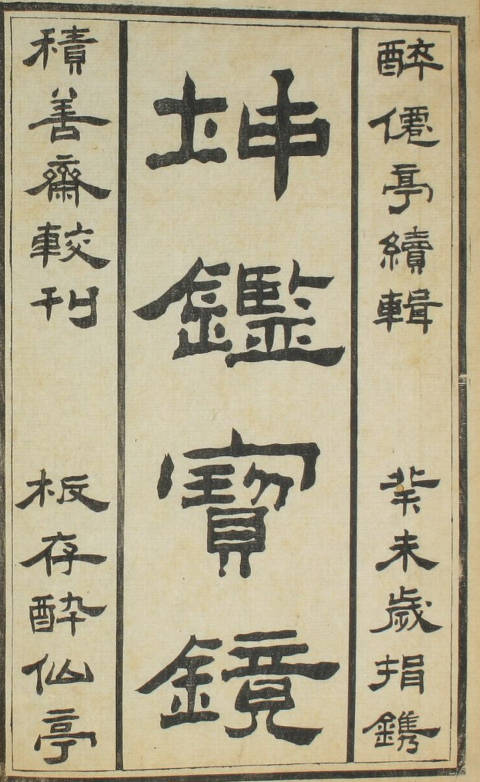 醉僊亭續輯 癸未歲捐鐫
坤鑑寶鏡
積善齋較刊 板存酔仙亭